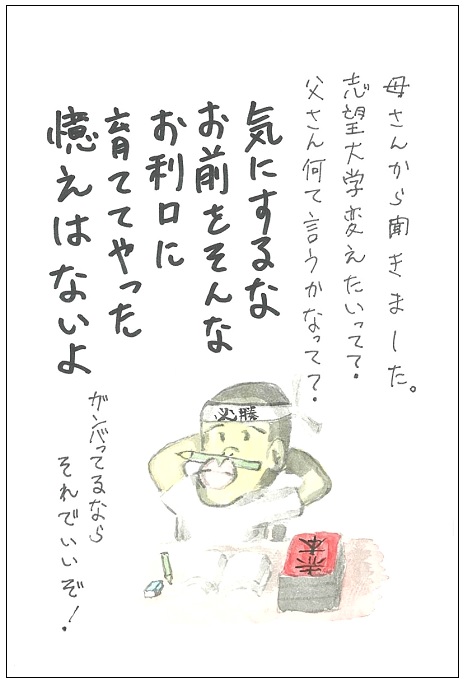 母さんから聞きました。
志望大学変えたいってて・
父さん何て言うかなってて・
気にするな
お前をそんな
お利口に
育ててやった
憶えはないよ
ガンバってるなら
それでいいぞ！
必勝
赤本